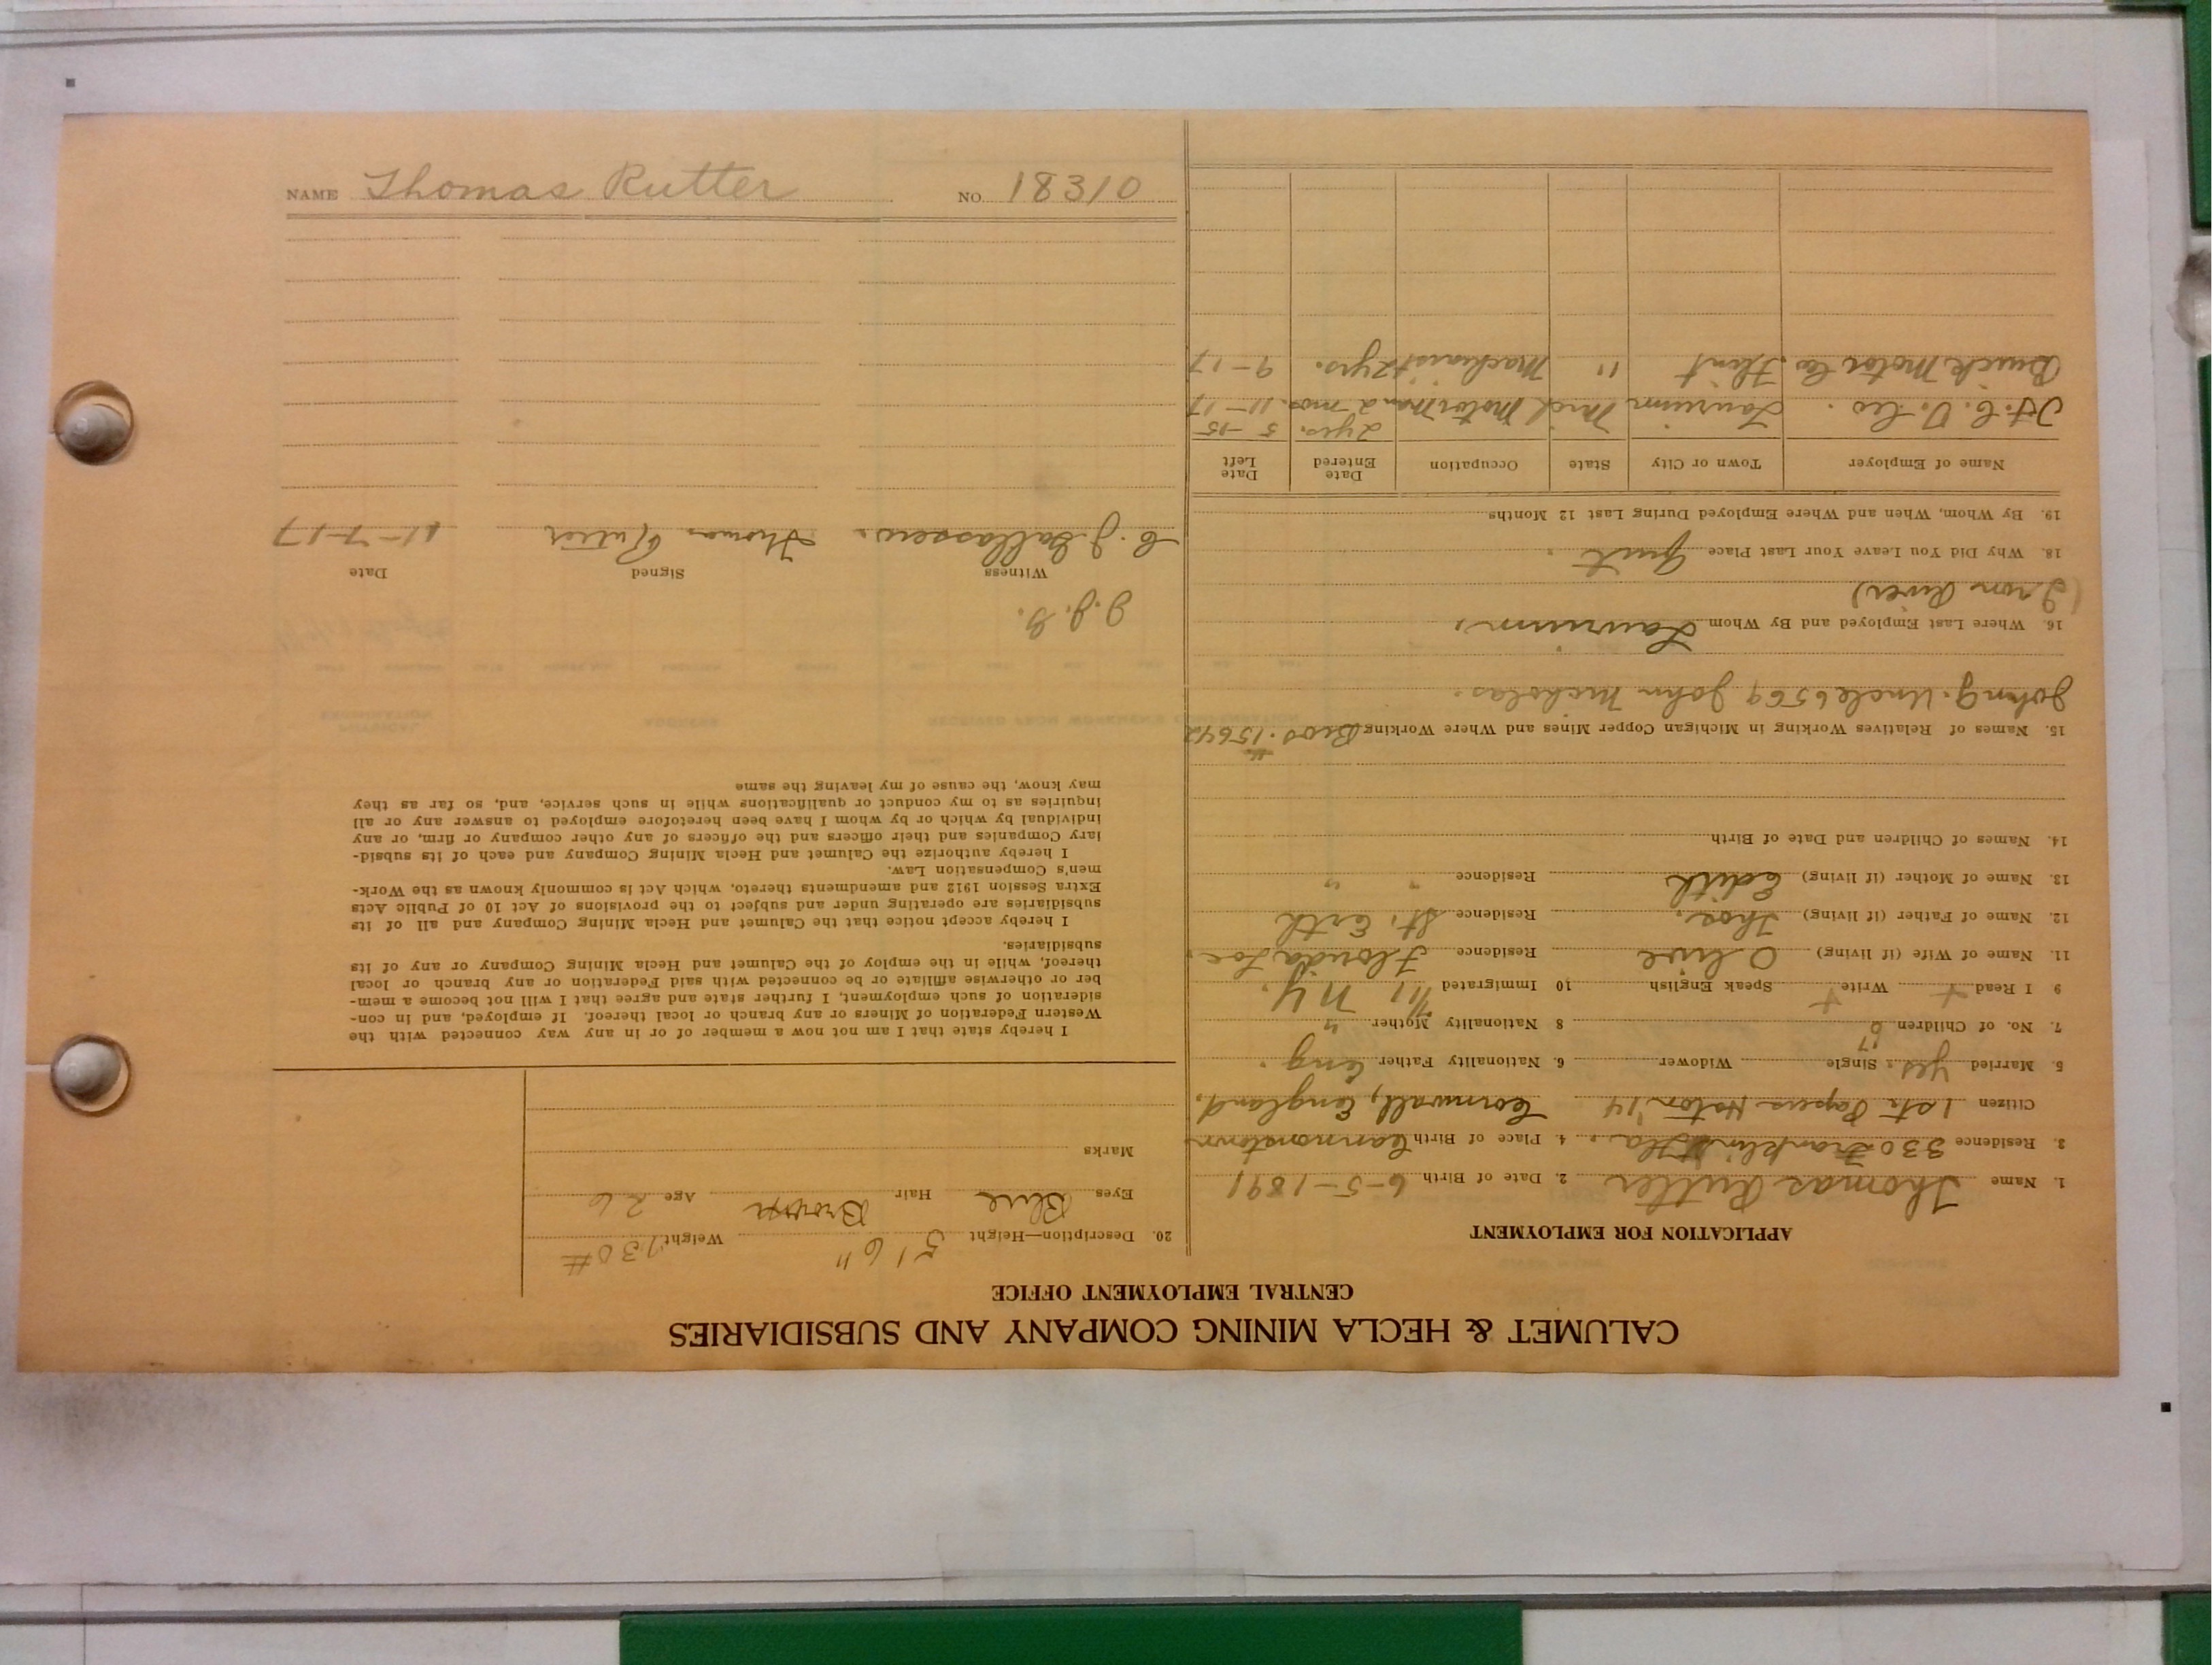 CALUMET & HECLA MINING COMPANY AND SUBSIDIARIES
CENTRAL EMPLOYMENT OFFICE
APPLICATION FOR EMPLOYMENT
1. Name Thomas Rutter 2. Date of Birth 6-5-1891
3. Residence 330 Franklin Fla. 4. Place of Birth
Citizen 1st. Papers Hoton '14 Cornwall, England.
5. Married yes. Single Widower 6. Nationality Father Eng.
7. No. of Children 0 8 Nationality Mother "
9 I Read + Write + Speak English 10 Immigrated N.Y.
11. Name of Wife (if living) Olive Residence Florida Loc.
12. Name of Father (if living) Thos. Residence St. Erth
13. Name of Mother (if living) Edith Residence " "
14. Names of Children and Date of Birth
15. Names of Relatives Working in Michigan Copper Mines and Where Working Bros. #15642
John J. Uncle 6569 John Nicholas.
16. Where Last Employed and By Whom Laurium.
(Iron River)
18. Why Did You Leave Your Last Place Quit.
19. By Whom, When and Where Employed During Last 12 Months
Name of Employer Town or City State Occupation Date Entered Date Left
2 yrs. 5-15
Laurium Mich Motorman 2 mos. 11-17
Buick Motor Co. Flint " Machinist 2 yrs. 9-17
20. Description—Height 5' 6" Weight 130#
Eyes Blue Hair Brown Age 26
Marks
I hereby state that I am not now a member of or in any way connected with the
Western Federation of Miners or any branch or local thereof. If employed, and in con-
sideration of such employment, I further state and agree that I will not become a mem-
ber or otherwise affiliate or be connected with said Federation or any branch or local
thereof, while in the employ of the Calumet and Hecla Mining Company or any of its
subsidiaries.
I hereby accept notice that the Calumet and Hecla Mining Company and all of its
subsidiaries are operating under and subject to the provisions of Act 10 of Public Acts
Extra Session 1912 and amendments thereto, which Act is commonly known as the Work-
men's Compensation Law.
I hereby authorize the Calumet and Hecla Mining Company and each of its subsid-
iary Companies and their officers and the officers of any other company or firm, or any
individual by which or by whom I have been heretofore employed to answer any or all
inquiries as to my conduct or qualifications while in such service, and, so far as they
may know, the cause of my leaving the same
Witness Signed Date
Thomas Rutter 11-7-17
NAME Thomas Rutter NO. 18310